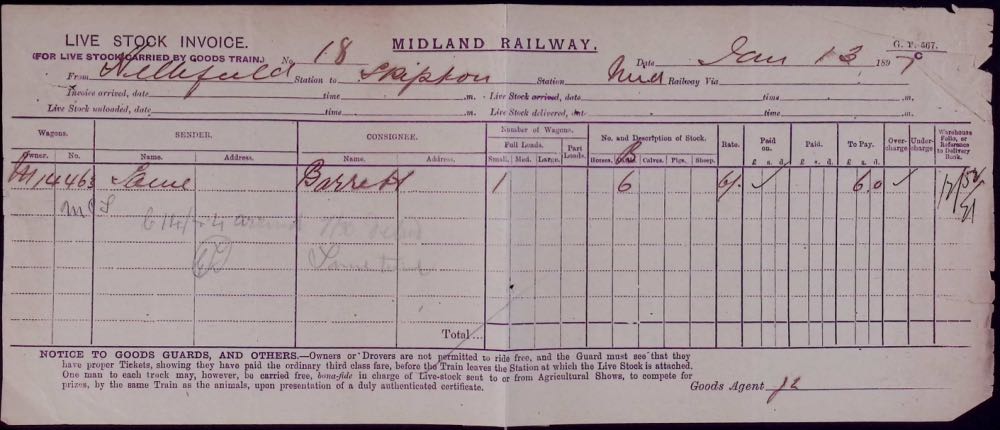 LIVE STOCK INVOICE.
(FOR LIVE STOCK CARRIED BY GOODS TRAIN.) No. 18
MIDLAND RAILWAY.
G. F. 567.
Date Jan 13 189
From Hellifield Station to Skipton Station Mid Railway Via
Invoice arrived, date time .m. Live Stock arrived, date time .m.
Live Stock unloaded, date time .m. Live Stock delivered, date time .m.
Wagons. SENDER. CONSIGNEE. Number of Wagons. No. and Description of Stock. Rate. Paid on. Paid. To Pay. Over-charge Under-charge Warehouse Folio, or Reference to Delivery Book.
Full Loads. Part Loads.
Owner. No. Name. Address. Name. Address. Small. Med. Large. Horses. Cattle. Calves. Pigs. Sheep. £ s. d. £ s. d. £ s. d.
B
M 14463 Same Barrett 1 6 6/- ✓ 6.0 ✓
Total...
NOTICE TO GOODS GUARDS, AND OTHERS.—Owners or Drovers are not permitted to ride free, and the Guard must see that they
have proper Tickets, showing they have paid the ordinary third class fare, before the Train leaves the Station at which the Live Stock is attached.
One man to each truck may, however, be carried free, bona-fide in charge of Live-stock sent to or from Agricultural Shows, to compete for
prizes, by the same Train as the animals, upon presentation of a duly authenticated certificate.
Goods Agent